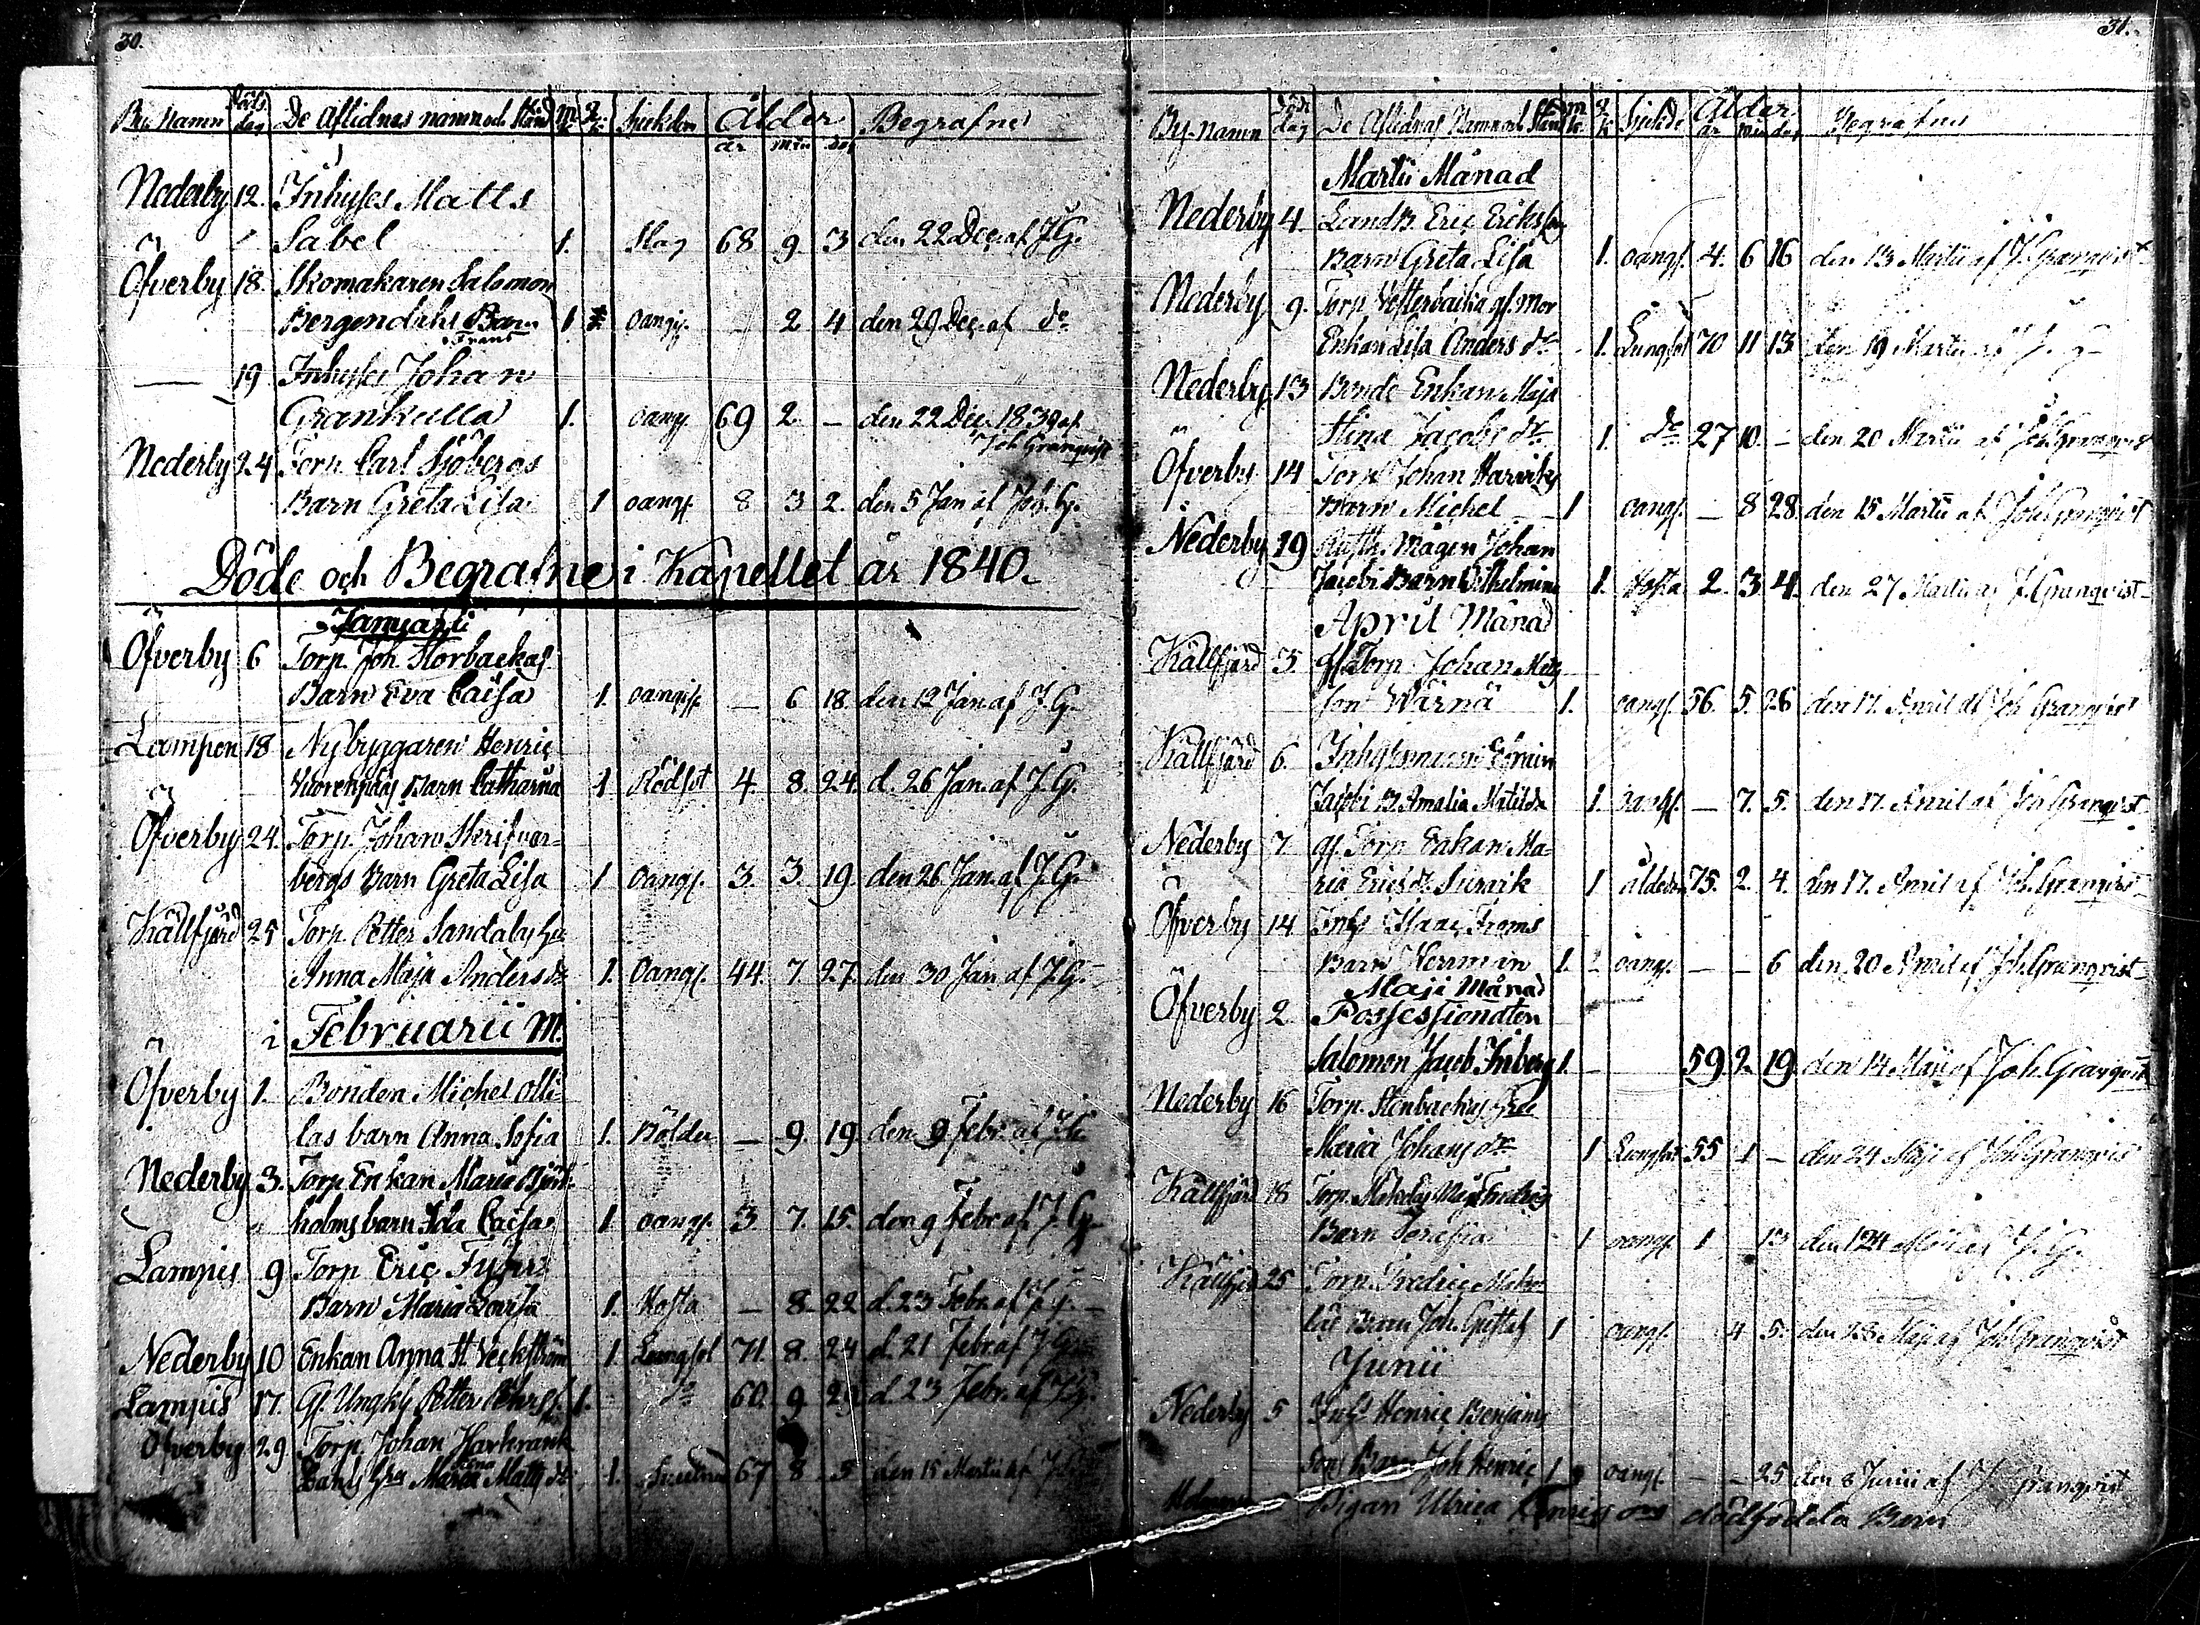 30.
By. Namn Döds dag De Aflidnas namn och Stånd M. Q. Sjukdom Ålder Begrafne
år mån dag
Nederby 12. Inhyses Matts
Sabel 1. Slag 68 9 3 den 22 Dec. af J. G.
Öfverby 18. Skomakaren Salomon
Bergendahls Barn 1 oangif. — 2 4 den 29 Dec. af do
Frans
— 19 Inhyses Johan
Grankulla 1. oang. 69 2 — den 22 Dec. 1839 af
Joh Granqvist
Nederby 24 Torp. Carl Sjöbergs
Barn Greta Lisa 1 oangf. 8 3 2. den 5 Jan af Joh. G.
Döde och Begrafne i Kapellet år 1840.
Januarii
Öfverby 6 Torp. Joh. Storbackas
Barn Eva Caisa 1. oangif. — 6 18. den 12 Jan af J. G.
Lampen 18 Nybyggaren Henric
Barn Catharina 1 Rödsot 4. 8. 24. d. 26 Jan. af J. G.
Öfverby 24. Torp. Johan Skrifvar-
bergs Barn Greta Lisa 1 Oangf. 3. 3. 19 den 26 Jan. af J. G.
Källfjärd 25 Torp. Petter Sandaby
Anna Maja Anders dr 1. Oangf. 44. 7 27. den 30 Jan af J. G.
i Februarii M.
Öfverby 1. Bonden Michel Olli
las barn Anna Sofia 1. Bölder — 9. 19 den 9 Febr. af J. G.
Nederby 3. Torp Enkan Maria Björk-
holms barn Ida Caisa 1 oangf. 3. 7. 15. den 9 Febr af J. G.
Lampis 9 Torp Eric
Barn Maria Lovisa 1. Hosta — 8. 22 d. 23 Febr. af J. G.
Nederby 10 Enkan Anna St. Veckström 1. Lungsot 71. 8. 24 d. 21 Febr af J. G.
Lampis 17. Gl. Ungk. Petter 1. do 60. 9 d. 23 Febr. af J. G.
Öfverby 29 Torp. Johan Harkrank
Maria Matts dr 1. 67 8 5 den 15 Martii af J.
31.
By-namn Döds dag De Aflidnas Namn och Stånd M k Q k Sjukdo Ålder Begrafne
år mån dag
Martii Månad
Nederby 4. Landb. Eric Eriks
Barn Greta Lisa 1. oangf. 4. 6 16 den 13 Martii af J. Granqvist
Nederby 9. Torp. Vesterbacka gl. Mor
Enkan Lisa Anders dr 1. Lungsot 70 11 13. den 19 Martii af J. G
Nederby 13 Bonde Enkan Maja
Stina Jacobs dr 1. do 27 10. — den 20 Martii af Joh Granqvist
Öfverby 14 Torp. Johan Harviks
Barn Michel — 1 oangf. — 8 28. den 15 Martii af Joh Granqvist
Nederby 19 Mågen Johan
Jacobs Barn Vilhelmina 1. Hosta 2. 3. 4. den 27 Martii af J. Granqvist
April Månad
Källfjärd 3. Gl. Torp. Johan Mats
son Wärnä 1. oangf. 56. 5. 26 den 17. April af Joh Granqvist
Källfjärd 6. Inhysman
Jacobs B. Amalia Matilda 1. oangf. — 7. 5. den 17. April af Joh Granqvist
Nederby 7 gl. Torp. Enkan Ma-
ria Erics dr 1 ålderdom 75. 2. 4. den 17. April af Joh. Granqvist
Öfverby 14 Inhs Isaac Froms
Barn Herrman 1. oangf. — — 6 den 20 April af Joh. Granqvist
Maji Månad
Öfverby 2 Possessionaten
Salomon Jacob Inberg 1. — 59. 2. 19. den 14 Maji af Joh. Granqvist
Nederby 16 Torp. Stenbackas
Maria Johans dr 1 Lungsot 55 1 — den 24 Maji af Joh Granqvist
Källfjärd 18 Torp. Fredric
Barn Serafia 1 oangf. 1 13 den 24 Maji af J. G.
Källfjärd 25 Torp. Fredric
Barn Joh. Gustaf 1 oangf. 4 5. den Maji af Joh Granqvist
Junii
Nederby 5 Inhs Henric Benjams
Son Barn Joh Henric 1 oangf. — — 25 den 8 Junii af J. Granqvist
Pigan Ulrica dödfödda Barn